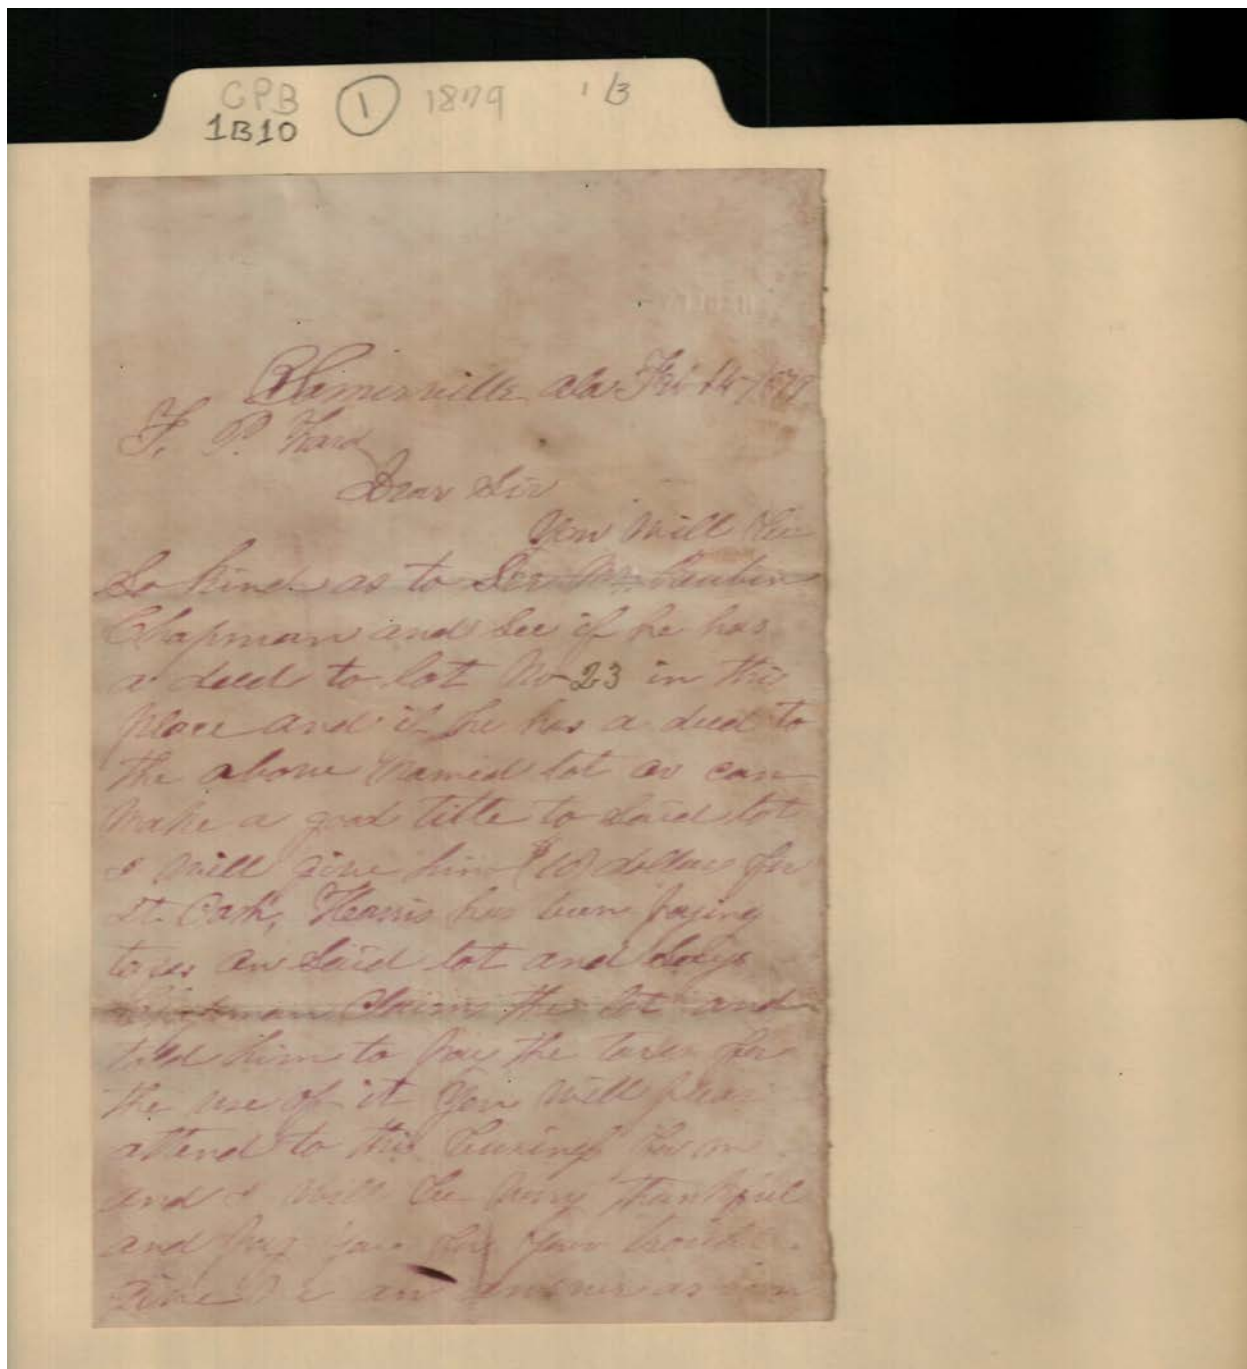 CPB 1 1879 1/3
1B10
Somerville Ala Feb 14 1879
F. P. Ward
Dear Sir
You Will be
So kind as to See Mr. Reubin
Chapman and See if he has
a deed to lot No 23 in this
place and if he has a deed to
the above named lot or can
make a good title to Said lot
I will give him $10 dollars for
it Cash, Hearis has been paying
taxes on Said lot and Says
Chapman Claims the lot and
told him to pay the taxes for
the use of it You Will pleas
attend to this for me
and I will be very thankful
and pay you for your trouble.
Give Me an answer as soon